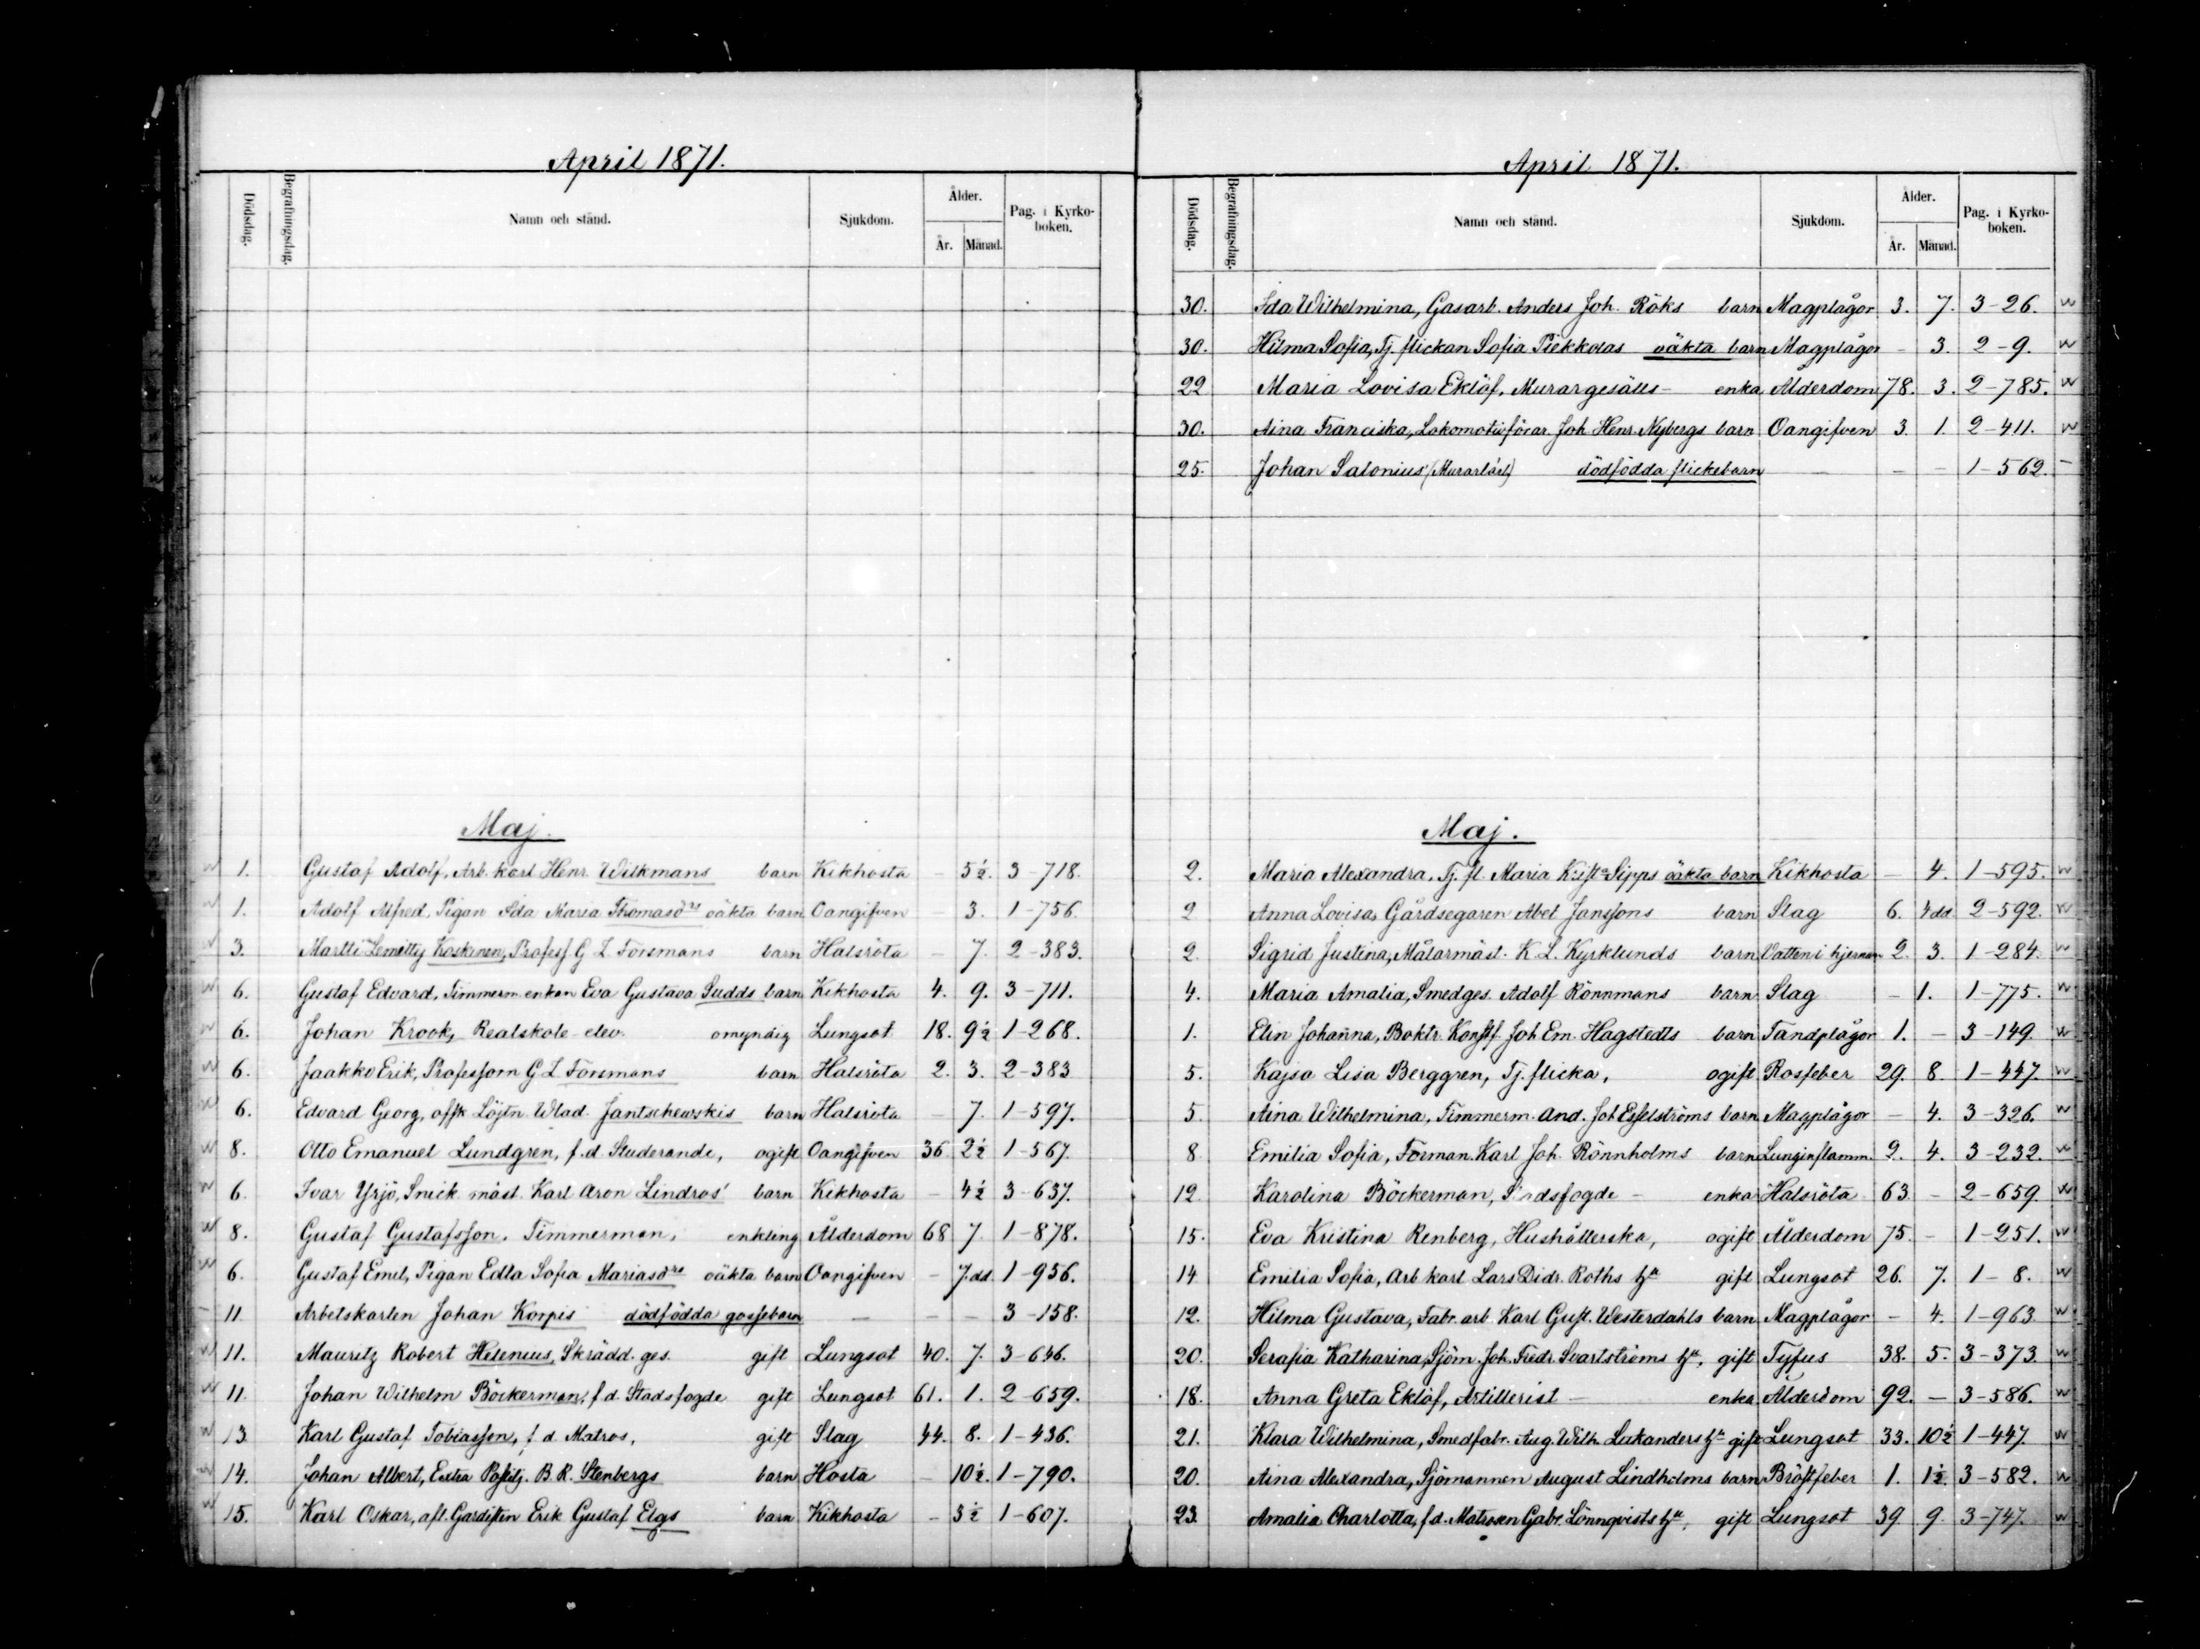 April 1871.
Dödsdag. Begrafningsdag. Namn och stånd. Sjukdom. Ålder. År. Månad. Pag. i Kyrkoboken.
Maj.
1. Gustaf Adolf, Arb. karl Henr. Wilkmans barn Kikhosta – 5½. 3–718.
1. Adolf Alfred, Pigan Ida Maria Thomasdrs oäkta barn Oangifven – 3. 1–756.
3. Martti Lemetty Koskinen, Professˢ G Z Forsmans barn Halsröta – 7. 2–383.
6. Gustaf Edvard, Timmerm. enkan Eva Gustava Sudds barn Kikhosta 4. 9. 3–711.
6. Johan Krook, Realskole elev. omyndig Lungsot 18. 9½ 1–268.
6. Jaakko Erik, Professorn G Z Forsmans barn Halsröta 2. 3. 2–383
6. Edvard Georg, affsk Löjtn. Wlad. Jantschewskis barn Halsröta – 7. 1–597.
8. Otto Emanuel Lundgren, f.d. Studerande, ogift Oangifven 36 2½ 1–567.
6. Ivar Yrjö, Snick. mäst. Karl Aron Lindros' barn Kikhosta – 4½ 3–637.
8. Gustaf Gustafsson, Timmerman, enkling Ålderdom 68 7. 1–878.
6. Gustaf Emil, Pigan Edla Sofia Mariasdrs oäkta barn Oangifven – 7.dd. 1–956.
11 Arbetskarlen Johan Korpis dödfödda gossebarn – – – 3–158.
11. Mauritz Robert Helenius, Skrädd. ges. gift Lungsot 40. 7. 3–646.
11. Johan Wilhelm Böckerman, f.d. Stadsfogde gift Lungsot 61. 1. 2–659.
13. Karl Gustaf Tobiasson, f.d. Matros, gift Slag 44. 8. 1–436.
14. Johan Albert, Extra Postilj. B. R. Stenbergs barn Hosta – 10½. 1–790.
15. Karl Oskar, afl. Gardisten Erik Gustaf Elgs barn Kikhosta – 3½ 1–607.
April 1871.
Dödsdag. Begrafningsdag. Namn och stånd. Sjukdom. Ålder. År. Månad. Pag. i Kyrkoboken.
30. Ida Wilhelmina, Gasarb. Anders Joh. Röks barn Magplågor 3. 7. 3–26.
30. Hilma Sofia, Tj. flickan Sofia Piekkolas oäkta barn Magplågor – 3. 2–9.
22 Maria Lovisa Eklöf, Murargesälls– enka Ålderdom 78. 3. 2–785.
30. Aina Franciska, Lokomotivförar. Joh. Henr. Nybergs barn Oangifven 3. 1. 2–411.
25. Johan Salonius' (Murarlärl) dödfödda flickebarn – – – 1–562.
Maj.
2. Maria Alexandra, Tj. fl. Maria Sipps oäkta barn Kikhosta – 4. 1–595.
2 Anna Lovisa, Gårdsegaren Abel Janssons barn Slag 6. 4 dd 2–592.
2. Sigrid Justina, Målarmäst. K. L. Kyrklunds barn Vatten i hjernan 2. 3. 1–284.
4. Maria Amalia, Smedges. Adolf Rönnmans barn Slag – 1. 1–775.
1. Elin Johanna, Boktr. Konstf. Joh Em. Hagstedts barn Tandplågor 1. – 3–149.
5. Kajsa Lisa Berggren, Tj. flicka, ogift Rosfeber 29. 8. 1–447.
5. Aina Wilhelmina, Timmerm. And. Joh Esselströms barn Magplågor – 4. 3–326.
8 Emilia Sofia, Forman. Karl Joh. Rönnholms barn Lunginflamm. 2. 4. 3–232.
12. Karolina Böckerman, Stadsfogde – enka Halsröta 63. – 2–659
15. Eva Kristina Renberg, Hushållerska, ogift Ålderdom 75. – 1–251.
14 Emilia Sofia, Arb karl Lars Didr. Roths hu gift Lungsot 26. 7. 1–8.
12. Hilma Gustava, Fabr. arb. Karl Gust. Westerdahls barn Magplågor – 4. 1–963.
20. Serafia Katharina, Sjöm. Joh. Fredr. Svartströms hu, gift Tyfus 38. 5. 3–373.
18. Anna Greta Eklöf, Artillerist – enka Ålderdom 92. – 3–586.
21. Klara Wilhelmina, Smedfabr. Aug. Wilh. Lukanders hu gift Lungsot 33. 10½ 1–447.
20. Aina Alexandra, Sjömannen August Lindholms barn Bröstfeber 1. 1½ 3–582.
23. Amalia Charlotta, f.d. Matrosen Gabr. Lönnqvists hu, gift Lungsot 39. 9. 3–747.